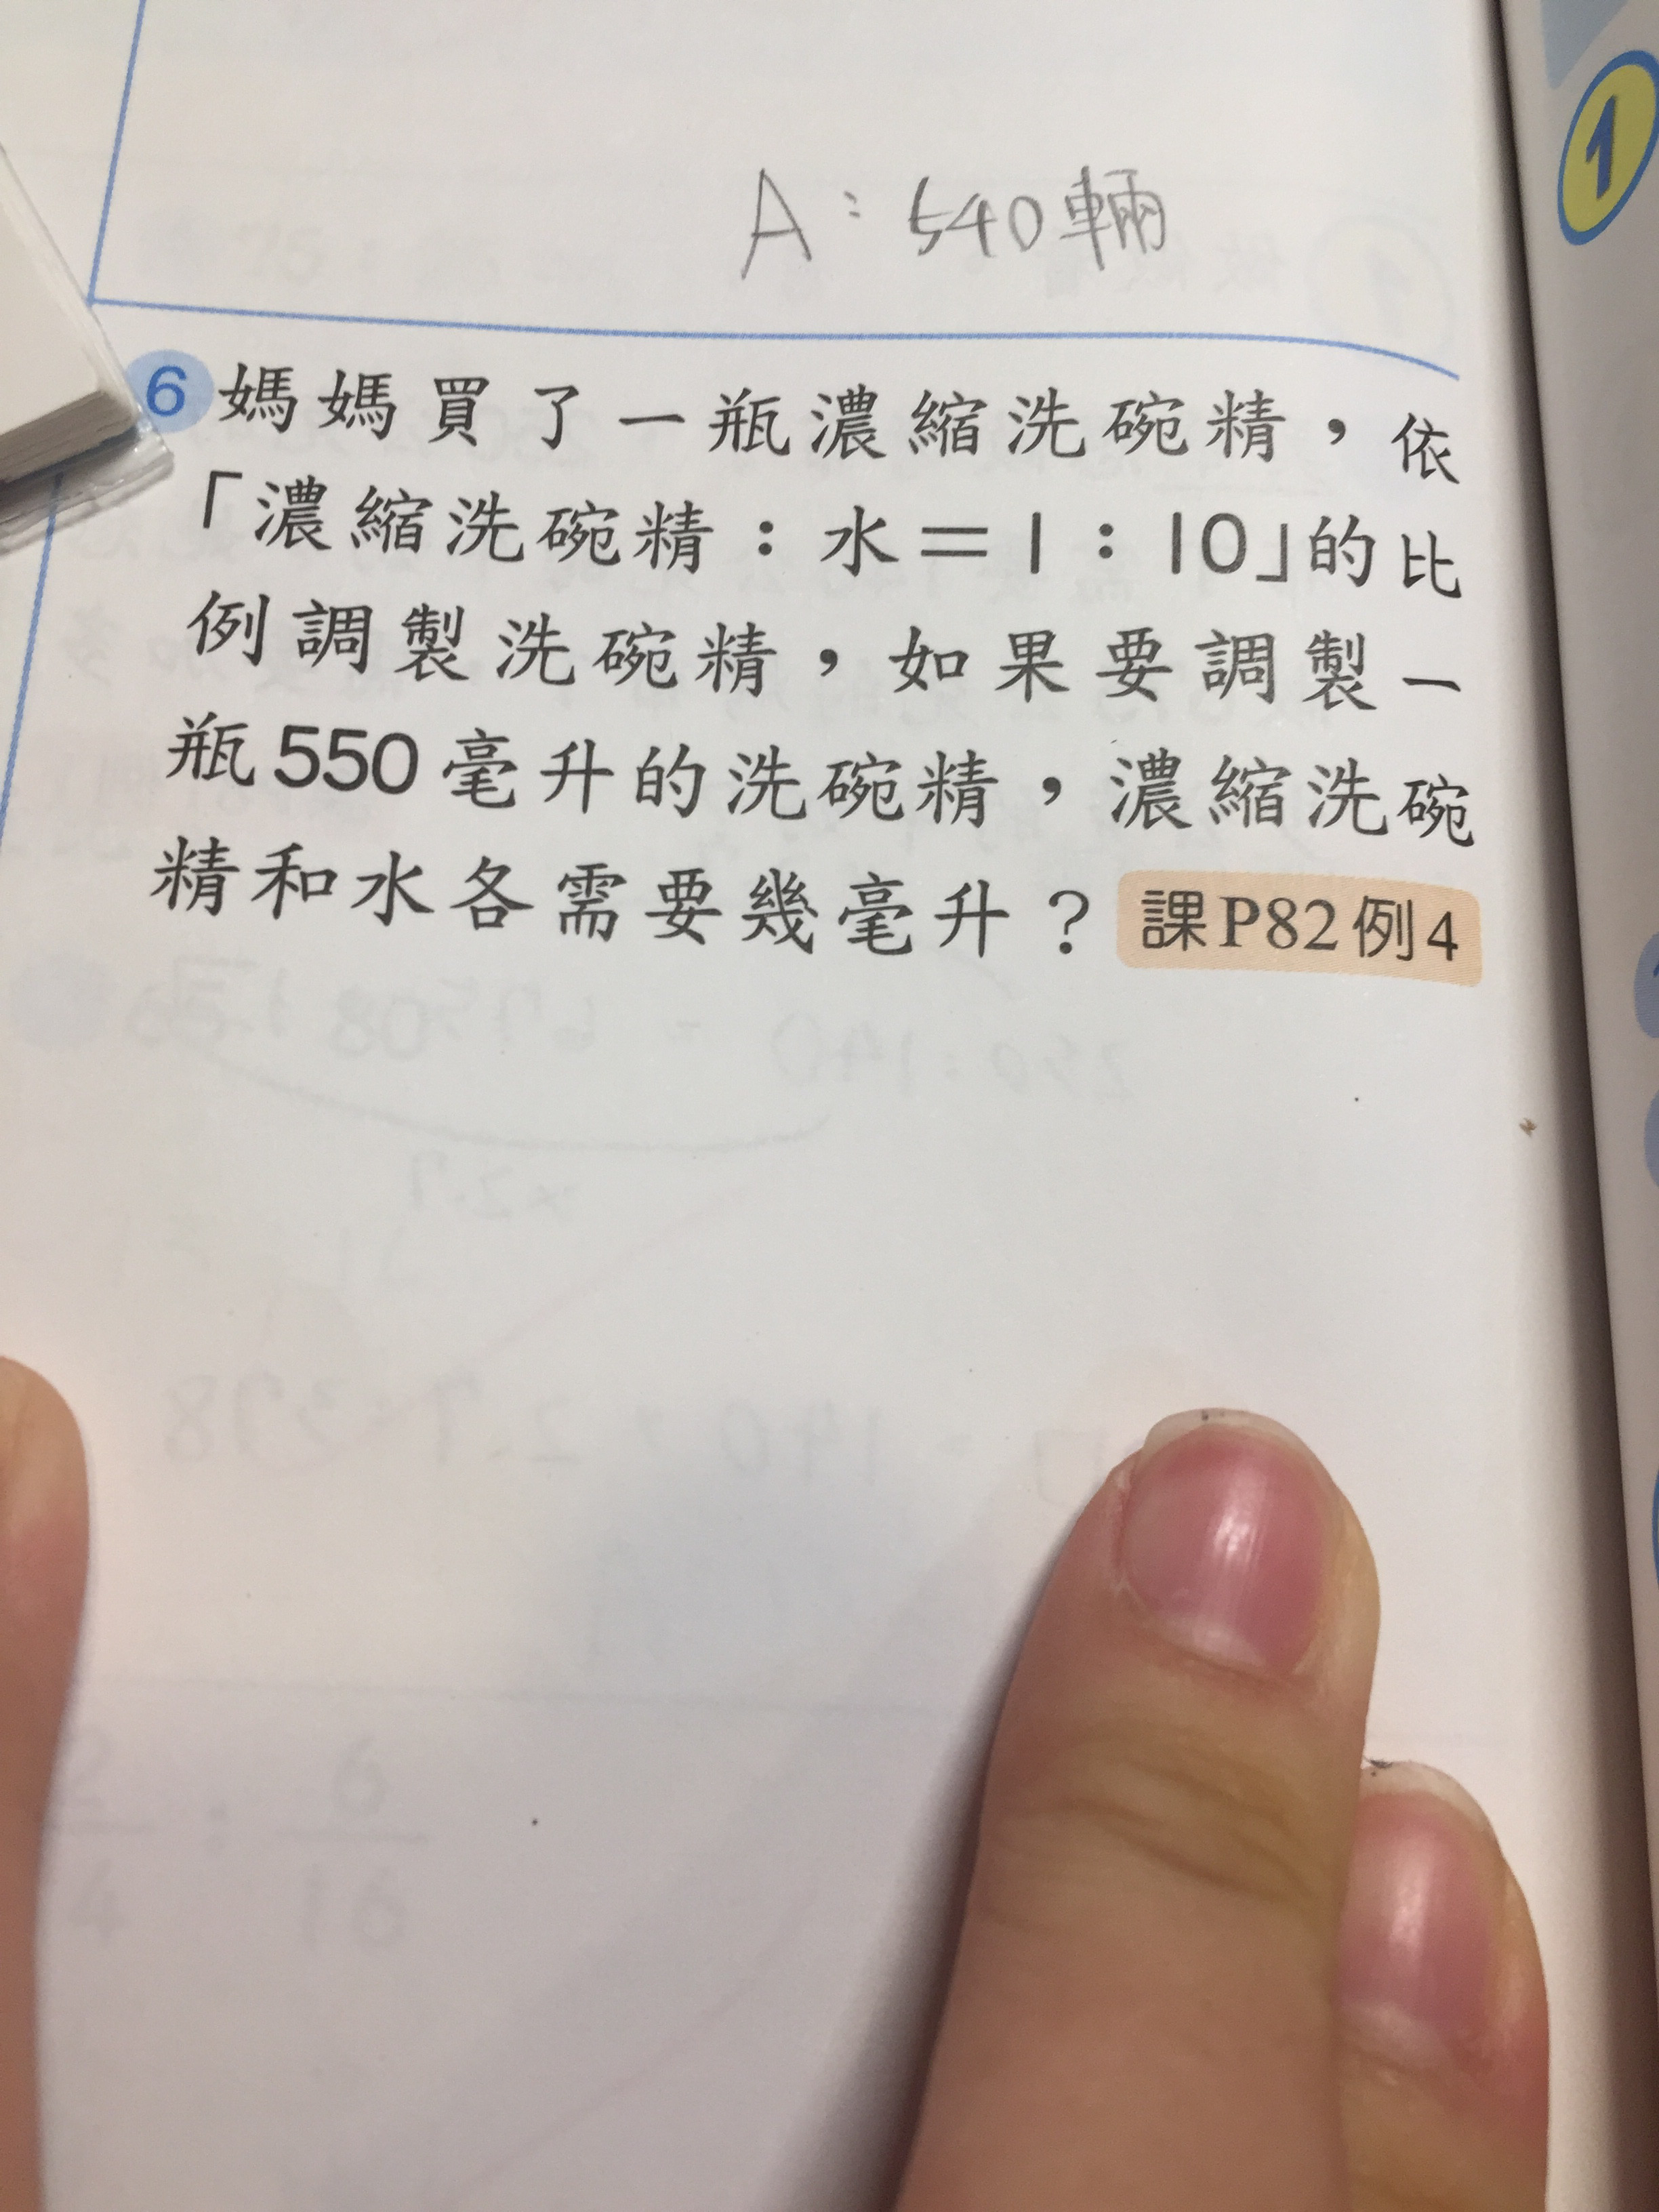 A：540輛
1
6 媽媽買了一瓶濃縮洗碗精，依
「濃縮洗碗精：水＝1：10」的比
例調製洗碗精，如果要調製一
瓶550毫升的洗碗精，濃縮洗碗
精和水各需要幾毫升？ 課P82例4